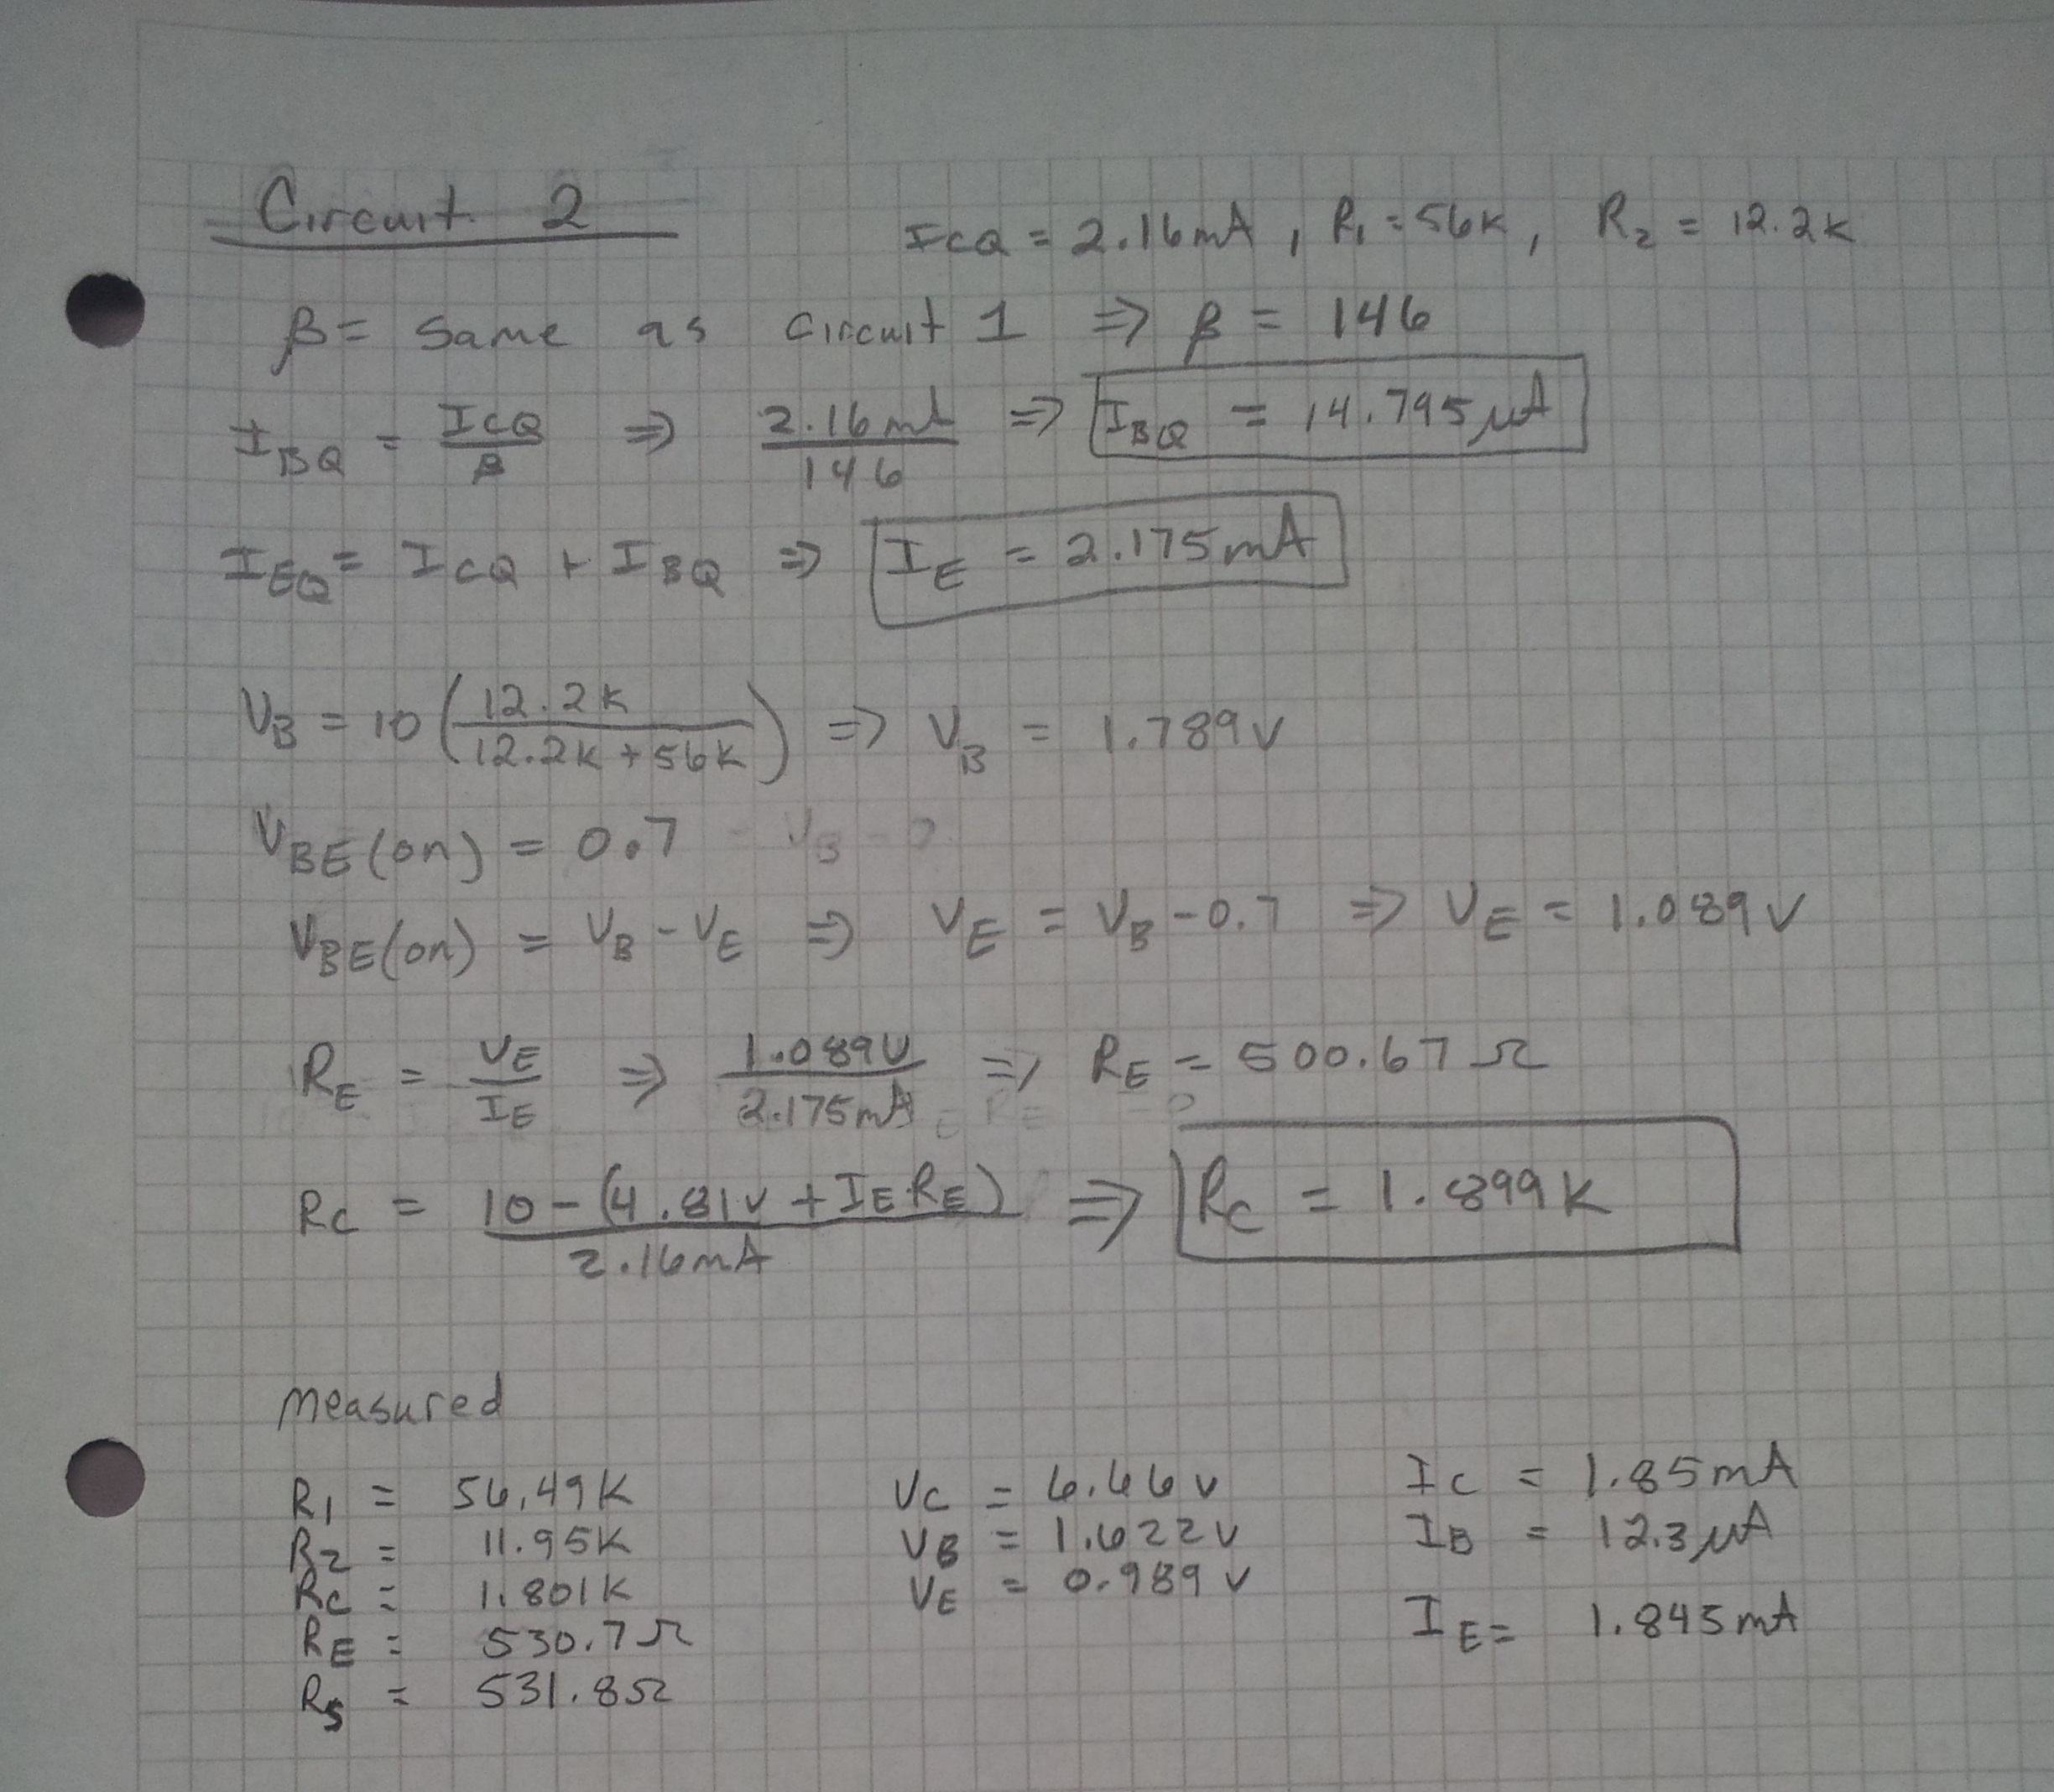 Circuit 2
I_CQ = 2.16mA, R₁ = 56K, R₂ = 12.2K
β = Same as Circuit 1 ⇒ β = 146
I_BQ = I_CQ/β ⇒ 2.16mA/146 ⇒ I_BQ = 14.795μA
I_EQ = I_CQ + I_BQ ⇒ I_E = 2.175mA
V_B = 10 (12.2K/(12.2K + 56K)) ⇒ V_B = 1.789V
V_BE(on) = 0.7
V_BE(on) = V_B - V_E ⇒ V_E = V_B - 0.7 ⇒ V_E = 1.089V
R_E = V_E/I_E ⇒ 1.089V/2.175mA ⇒ R_E = 500.67Ω
R_C = (10 - (4.81V + I_E R_E))/2.16mA ⇒ R_C = 1.899K
Measured
R₁ = 56.49K
R₂ = 11.95K
R_C = 1.801K
R_E = 530.7Ω
R_S = 531.8Ω
V_C = 6.66V
V_B = 1.622V
V_E = 0.989V
I_C = 1.85mA
I_B = 12.3μA
I_E = 1.845mA